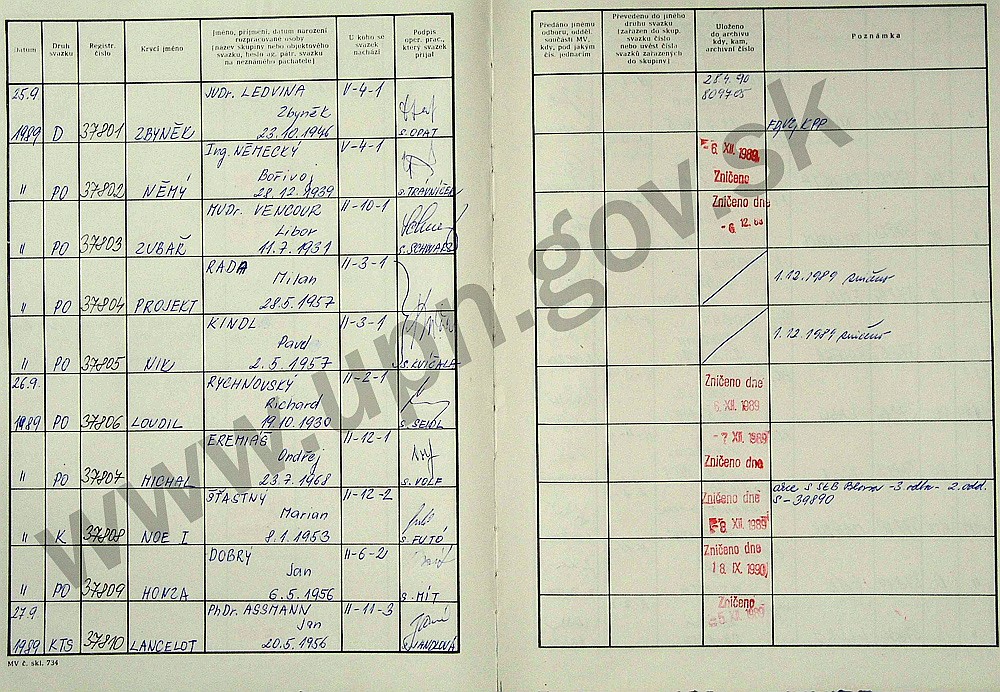 Datum
Druh svazku
Registr. číslo
Krycí jméno
Jméno, příjmení, datum narození
rozpracované osoby
(název skupiny nebo objektového
svazku, heslo ag. pátr. svazku
na neznámého pachatele)
U koho se
svazek
nachází
Podpis
oper. prac.,
který svazek
přijal
Předáno jinému
odboru, odděl.
součásti MV,
kdy, pod jakým
čís. jednacím
Převedeno do jiného
druhu svazku
(zařazen do skup.
svazku číslo
nebo uvést čísla
svazků zařazených
do skupiny)
Uloženo
do archivu
kdy, kam,
archivní číslo
Poznámka
25.9. JUDr. LEDVINA V-4-1 28.4.90
Zbyněk 809705
1989 D 37801 ZBYNĚK 23.10.1946 s. OPAT
Ing. NĚMECKÝ V-4-1 6. XII. 1989
Bořivoj
" PO 37802 NĚMÝ 28.12.1939 s. TRÁVNÍČEK Zničeno
MUDr. VENCOUR II-10-1 Zničeno dne
Libor - 6. 12.
" PO 37803 ZUBAŘ 11.7.1931 s. SCHWARZ
RADA II-3-1
Milan 1.12.1989 zničeno
" PO 37804 PROJEKT 28.5.1957
KINDL II-3-1
Pavel 1.12.1989 zničeno
" PO 37805 NIKI 2.5.1957 s. KVÍČALA
26.9. RYCHNOVSKÝ II-2-1 Zničeno dne
Richard 6. XII. 1989
1989 PO 37806 LOUDIL 19.10.1930 s. SEIDL
EREMIÁŠ II-12-1 - 7 XII. 1989
Ondřej
" PO 37807 MICHAL 23.7.1968 s. VOLF Zničeno dne
ŠŤASTNÝ II-12-2 Zničeno dne
Marian S-39890
" K 37808 NOE I 8.1.1953 s. FUTÓ 8. XII. 1989
DOBRÝ II-6-2 Zničeno dne
Jan 18. IX. 1990
" PO 37809 HONZA 6.5.1956 s. MÍT
27.9. PhDr. ASSMANN II-11-3 Zničeno
Jan
1989 KTS 37810 LANCELOT 20.5.1956 s. JANDLOVÁ
MV č. skl. 734
www.upn.gov.sk